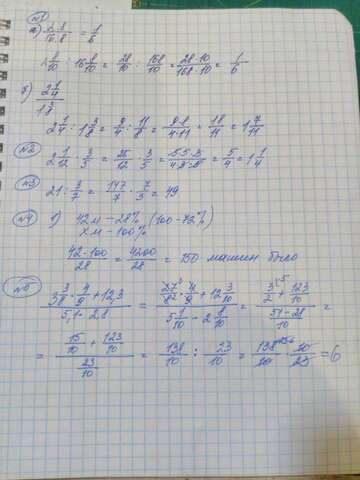 №1
а) 2,8/16,8 = 1/6
2 8/10 : 16 8/10 = 28/10 : 168/10 = 28·10/168·10 = 1/6
б) 2 1/4 / 1 3/8
2 1/4 : 1 3/8 = 9/4 : 11/8 = 9·8/4·11 = 18/11 = 1 7/11
№2 2 1/12 · 3/5 = 25/12 · 3/5 = 5·5·3/4·3·5 = 5/4 = 1 1/4
№3 21 : 3/7 = 147/7 · 7/3 = 49
№4 1) 42 м – 28% (100-72%)
х м – 100%
42·100/28 = 4200/28 = 150 машин было
№5 3 3/8 · 4/9 + 12,3 / 5,1 - 2,8 = 27/8 · 4/9 + 12 3/10 / 5 1/10 - 2 8/10 = 3/2 + 123/10 / 51-28/10 =
= 15/10 + 123/10 / 23/10 = 138/10 : 23/10 = 138/10 · 10/23 = 6